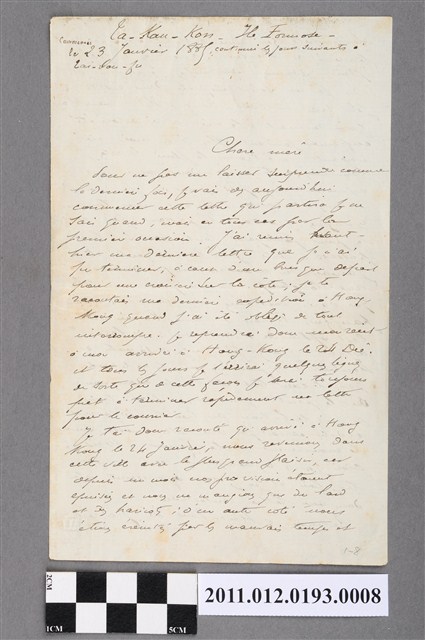 Ta-Kau-Kon. Ile Formose -
Commencée
le 23 Janvier 1885, continuée les jours suivants à
Tai-Wan-fu
Chère mère
Pour ne pas me laisser surprendre comme
la dernière fois, je vais dès aujourd'hui
commencer cette lettre qui partira je ne
sais quand, mais en tous cas par la
première occasion. J'ai remis
hier ma dernière lettre que je n'ai
pu terminer, à cause d'un brusque départ
pour une croisière sur la côte; je te
racontais ma dernière expédition à Hong
Kong quand j'ai été obligé de tout
interrompre. Je reprendrai donc mon récit
à mon arrivée à Hong-Kong le 24 Déc.
et tous les jours j'écrirai quelques lignes
de sorte que de cette façon j'aurai toujours
prêt à terminer rapidement ma lettre
pour le courrier.
Je te dirai donc qu'arrivé à Hong
Kong le 24 janvier, nous revenions dans
cette ville avec le plus grand plaisir, car
depuis un mois nos provisions étaient
épuisées et nous ne mangions que du lard
et des haricots; d'un autre côté nous
étions éreintés par les mauvais temps et
1-8
2CM
1CM
5CM
2011.012.0193.0008